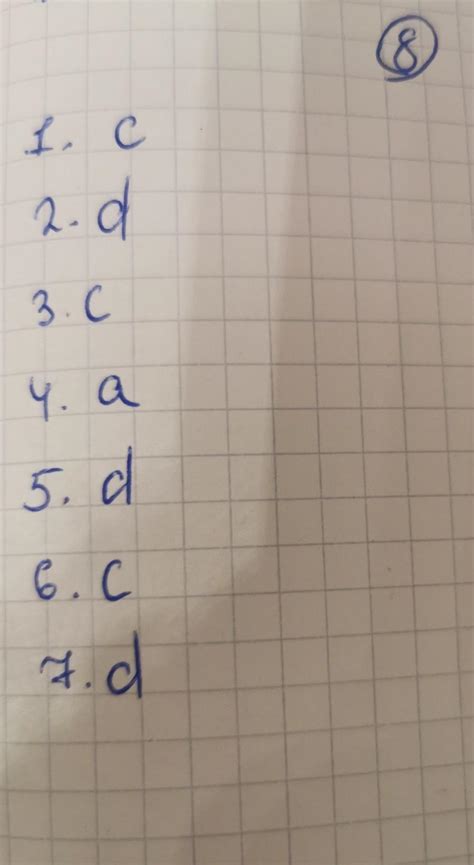 8
1. c
2. d
3. c
4. a
5. d
6. c
7. d